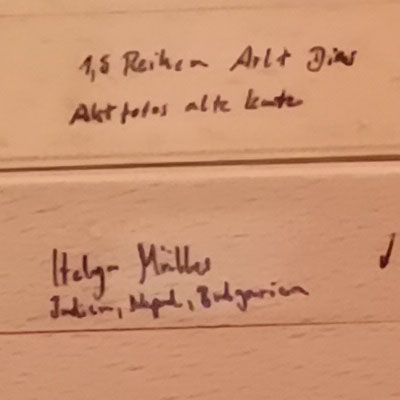 1,5 Reihen Akt Dias
Aktfotos alte Leute
Helga Müller
Indien, Nepal, Bulgarien